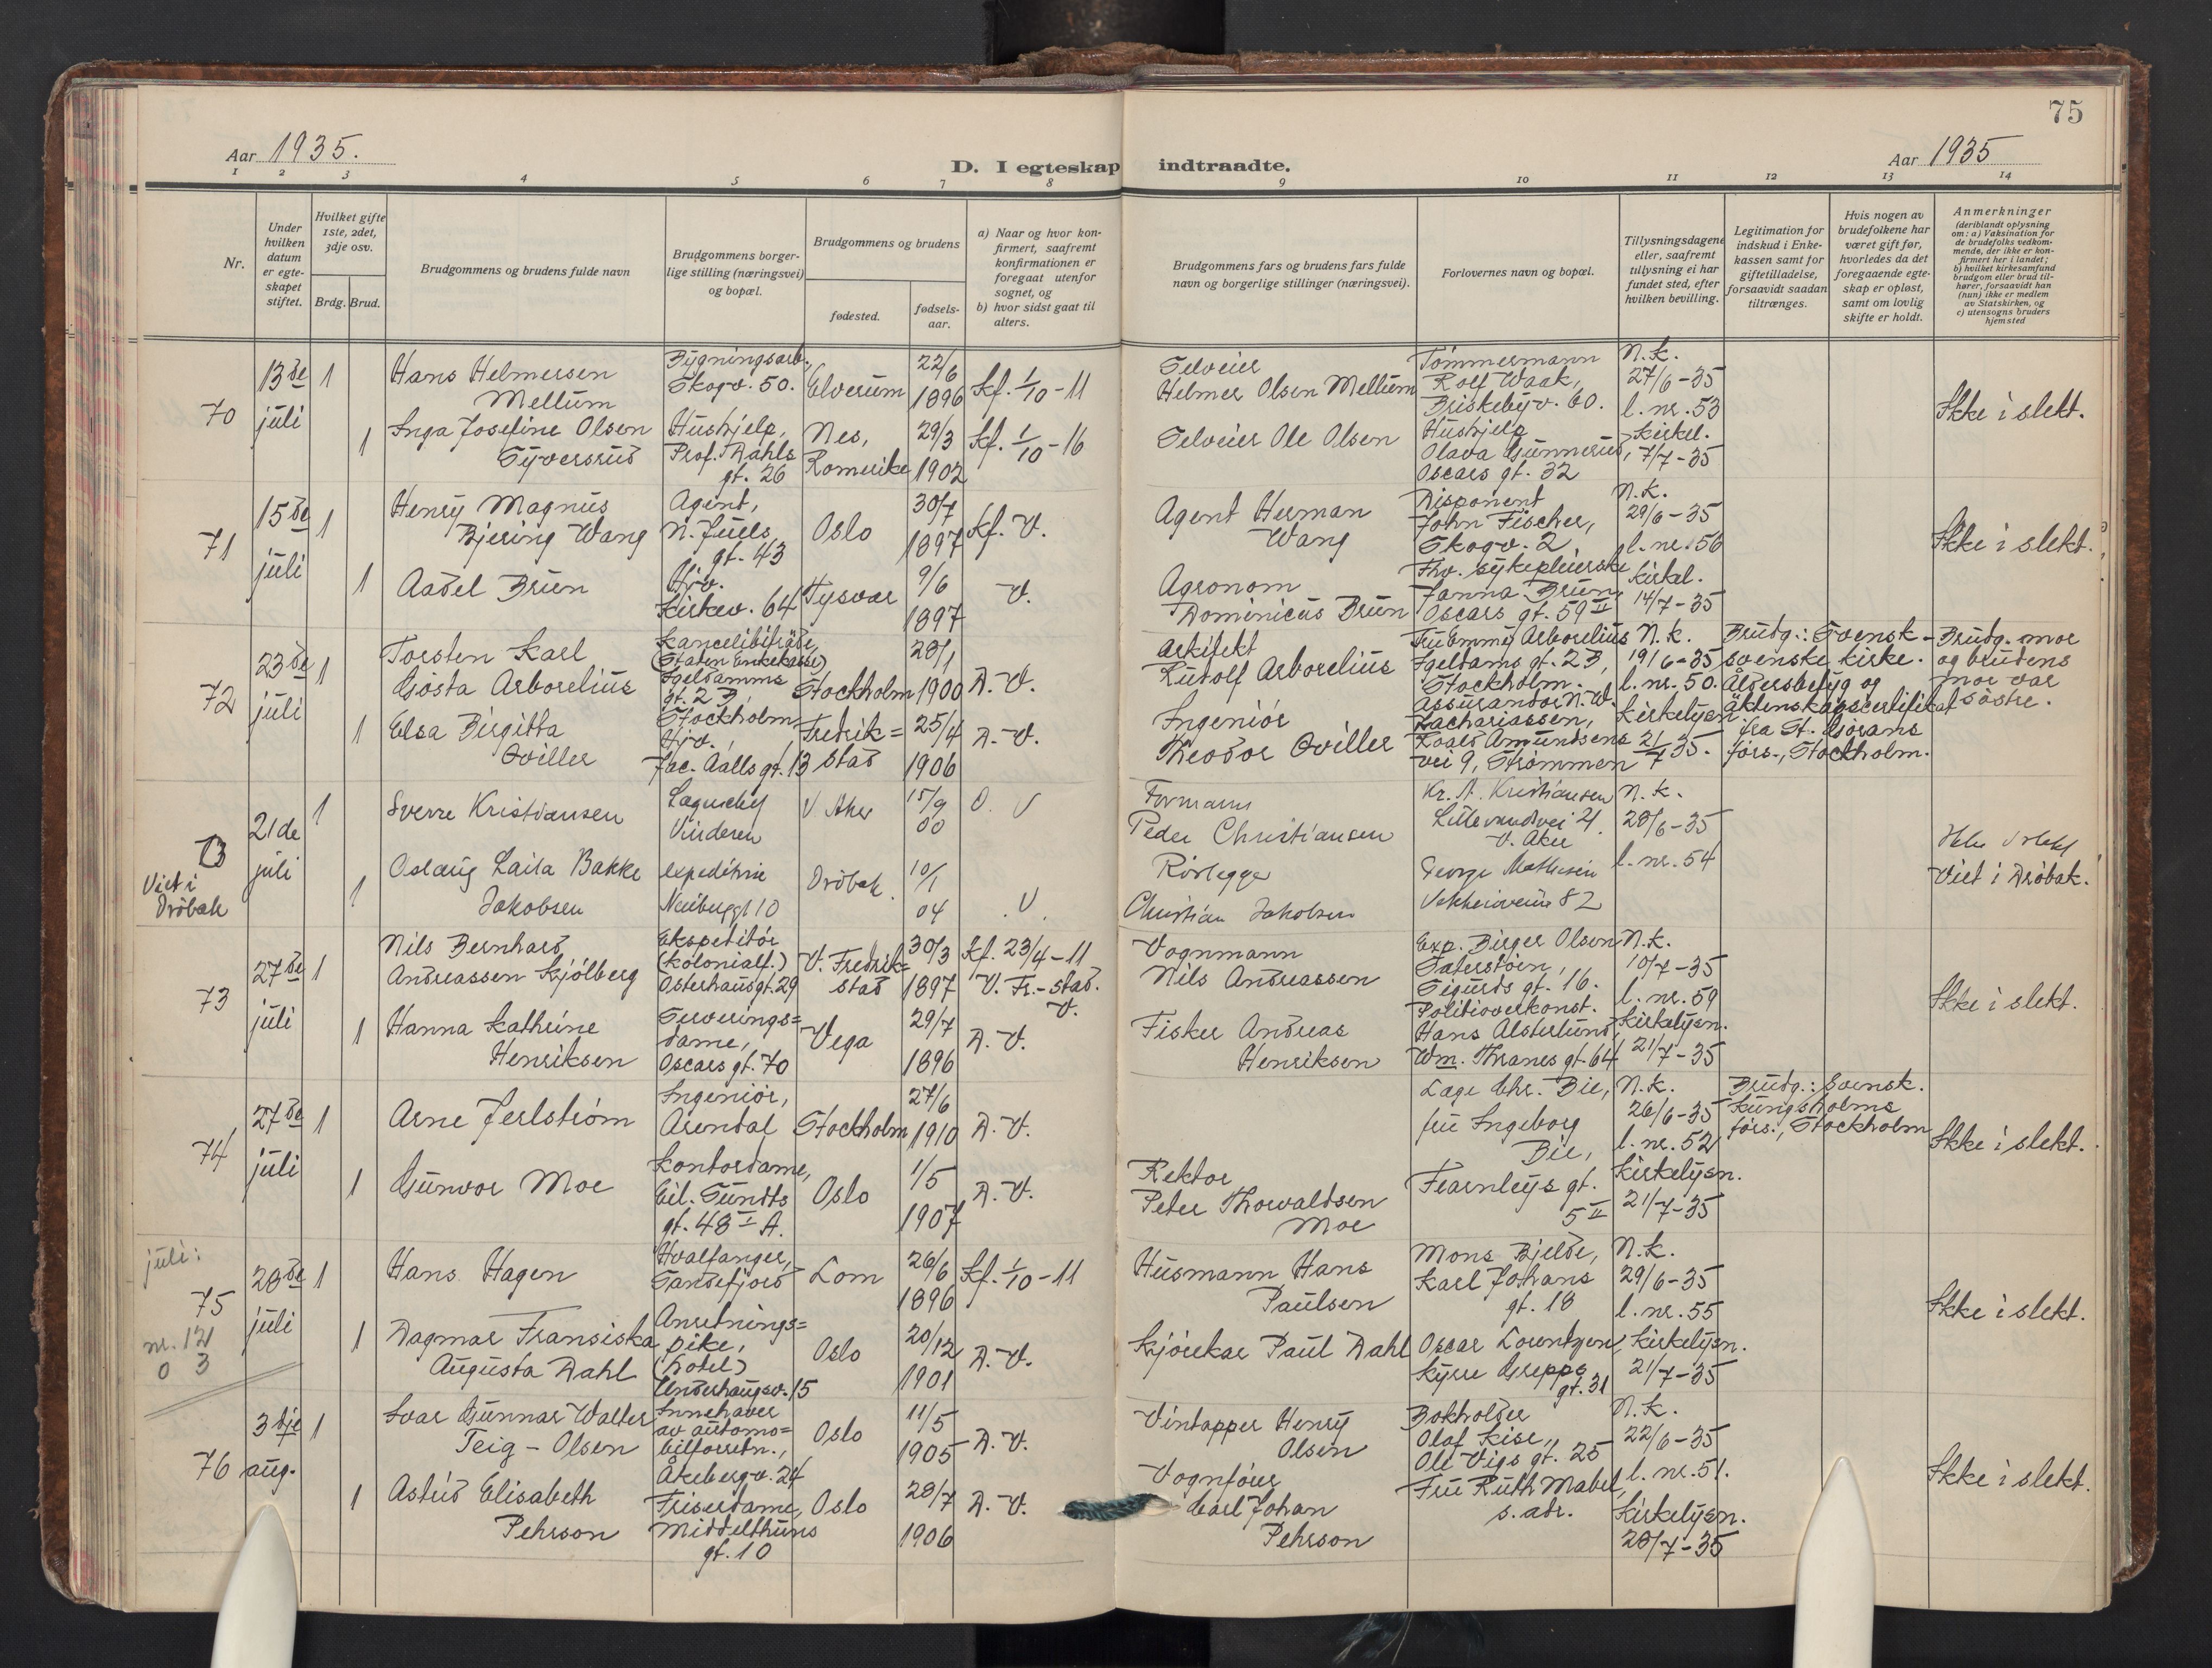 75
Aar 1935.
D. I egteskap indtraadte.
Aar 1935
1 2 3 4 5 6 7 8 9 10 11 12 13 14
Nr.
Under hvilken datum er egte-skapet stiftet.
Hvilket gifte 1ste, 2det, 3dje osv.
Brdg. Brud.
Brudgommens og brudens fulde navn
Brudgommens borger-lige stilling (næringsvei) og bopæl.
Brudgommens og brudens
fødested.
fødsels-aar.
a) Naar og hvor kon-firmert, saafremt konfirmationen er foregaat utenfor sognet, og
b) hvor sidst gaat til alters.
Brudgommens fars og brudens fars fulde navn og borgerlige stillinger (næringsvei).
Forlovernes navn og bopæl.
Tillysningsdagene eller, saafremt tillysning ei har fundet sted, efter hvilken bevilling.
Legitimation for indskud i Enke-kassen samt for giftetilladelse, forsaavidt saadan tiltrænges.
Hvis nogen av brudefolkene har været gift før, hvorledes da det foregaaende egte-skap er opløst, samt om lovlig skifte er holdt.
Anmerkninger (deriblandt oplysning om: a) Vaksination for de brudefolks vedkom-mende, der ikke er kon-firmert her i landet; b) hvilket kirkesamfund brudgom eller brud til-hører, forsaavidt han (hun) ikke er medlem av Statskirken, og c) utensogns bruders hjemsted
70
13de juli
1
Hans Helmersen Mellum
Bygningsarb., Skogv. 50.
Elverum
22/6 1896
Kf. 1/10-11
Selveier Helmer Olsen Mellum
Tömmermann Rolf Waak, Briskebyv. 60.
N.k. 27/6-35 l. nr. 53
Ikke i slekt.
1
Inga Josefine Olsen Syversrud
Hushjelp, Prof. Dahls gt. 26
Nes, Romerike
29/3 1902
Kf. 1/10-16
Selveier Ole Olsen
Hushjelp Olava Gunnerud, Oscars gt. 32
kirkel. 7/7-35
71
15de juli
1
Henry Magnus Bjering Wang
Agent, N. Juels gt. 43
Oslo
30/7 1897
Kf. V.
Agent Herman Wang
Disponent John Fischer, Skogv. 2
N.k. 29/6-35 l. nr. 56
Ikke i slekt.
1
Aadel Brun
Hjv. Kirkev. 64
Tysvær
9/6 1897
V.
Agronom Dominicus Brun
Fhv. sykepleierske Janna Bruun Oscars gt. 59 II
kirkel. 14/7-35
72
23de juli
1
Torsten Karl Gösta Arborelius
Kanceliбiträde, (Staten Enkekasse) Igeldamms gt. 23, Stockholm
Stockholm
28/1 1900
D. V.
Arkitekt Rudolf Arborelius
Fru Emmy Arborelius Igeldams gt. 23, Stockholm.
N.k. 19/6-35 l. nr. 50.
Brudg.: Svensk - svenske kirke. Åldersbetyg og äktenskapscertifikat fra St. Görans förs., Stockholm.
Brudg. mor og brudens mor var söstre.
1
Elsa Birgitta Oviller
Hjv., Jac. Aalls gt. 13
Fredrik=stad
25/4 1906
D. V.
Ingeniör Theodor Oviller
Assurandör N. W. Zachariassen, Roald Amundsens vei 9, Strømmen
Kirkelysn. 21/7 35.
73
Viet i Dröbak
21de juli
1
Sverre Kristiansen
Vinderen
V. Aker
15/9 00
D. V
Formann Peder Christiansen
Kr. A. Kristiansen 21. V. Aker
N.k. 28/6-35 l. nr. 54
Viet i Dröbak.
1
Oslaug Laila Bakke Jakobsen
expeditrise Neuberggt 10
Dröbak
10/1 04
V.
Rörlegger Christian Jakobsen
George Mathisen 82
73
27de juli
1
Nils Bernhard Andreassen Kjölberg
Ekspeditör (kolonialf.) Osterhausgt. 29
V. Fredrik=stad
30/3 1897
Kf. 23/4-11 V. Fr.-stad. V.
Vognmann Nils Andreassen
Exp. Birger Olsen Sæterstöen, Sigurds gt. 16.
N.k. 10/7-35 l. nr. 59
Ikke i slekt.
1
Hanna Kathrine Henriksen
Serverings=dame, Oscars gt. 70
Vega
29/7 1896
D. V.
Fisker Andreas Henriksen
Politioverkonst. Hans Alsterlund, Wm. Thranes gt. 64
Kirkelysn. 21/7-35
74
27de juli
1
Arne Jerlström
Ingeniör, Arendal
Stockholm
27/6 1910
D. V.
Læge Chr. Bie,
N.k. 26/6-35 l. nr. 52
Brudg.: Svensk. Kungsholms förs., Stockholm
Ikke i slekt.
1
Gunvor Moe
Kontordame, Eil. Sundts gt. 48 I A.
Oslo
1/5 1907
D. V.
Rektor Peter Thorvaldsen Moe
fru Ingeborg Bie, Fearnleys gt. 5 II
Kirkelysn. 21/7-35
juli:
75
nr. 121
0 3
28de juli
1
Hans Hagen
Hvalfanger, Sandefjord
Lom
26/6 1896
Kf. 1/10-11
Husmann Hans Paulsen
Mons Bjelde, Karl Johans gt. 18
N.k. 29/6-35 l. nr. 55
Ikke i slekt.
1
Dagmar Fransiska Augusta Dahl
Anretnings=pike, (hotel) Underhaugsv. 15
Oslo
20/12 1901
D. V.
Kjörekar Paul Dahl
Oscar Lorentzen, Kyrre Greppsgt. 31
Kirkelysn. 21/7-35
76
3dje aug.
1
Ivar Gunnar Walter Teig-Olsen
Innehaver av automo=bilforretn., Åkebergv. 24
Oslo
11/5 1905
D. V.
Vintapper Henry Olsen
Bokholder Olaf Kise, Ole Vigs gt. 25
N.k. 22/6-35 l. nr. 51.
Ikke i slekt.
1
Astrid Elisabeth Pehrson
Friserdame, Middelthuns gt. 10
Oslo
28/7 1906
D. V.
Vognförer Carl Johan Pehrson
Fru Ruth Mabel, s. adr.
Kirkelysn. 28/7-35